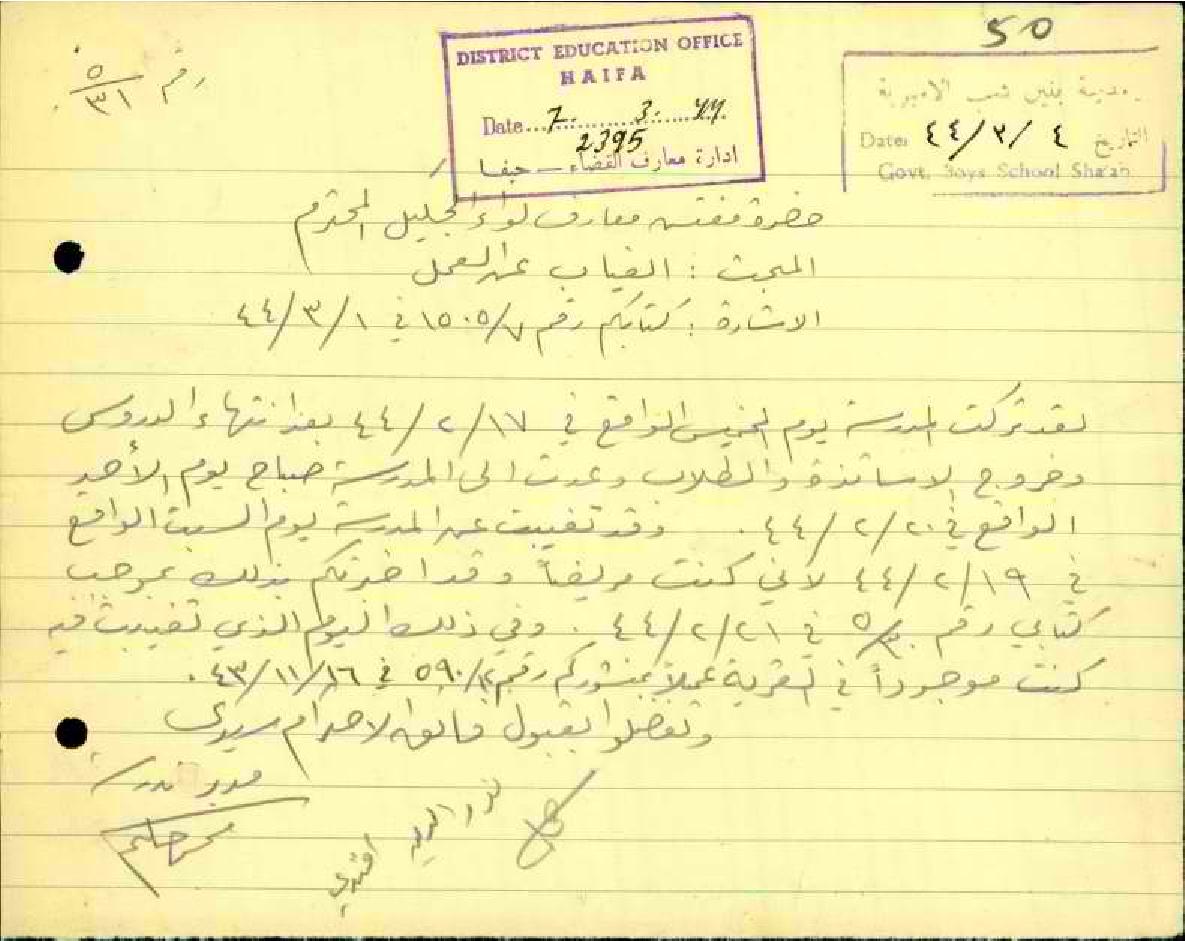 50
رقم ٥/٣١
DISTRICT EDUCATION OFFICE
HAIFA
Date 7. 3. 44.
2395
ادارة معارف القضاء — حيفا
مدرسة بنين شعب الاميرية
Date ٤٤/٣/٤ التاريخ
Govt. Boys School Sha'ab
حضرة مفتش معارف لواء الجليل المحترم
المبحث : الغياب عن العمل
الاشارة : كتابكم رقم ١٥٠٥/٧ في ٤٤/٣/١
لقد تركت المدرسة يوم الخميس الواقع في ٤٤/٢/١٧ بعد انتهاء الدروس
وخروج الاساتذة والطلاب وعدت الى المدرسة صباح يوم الأحد
الواقع في ٤٤/٢/٢٠ . وقد تغيبت عن المدرسة يوم السبت الواقع
في ٤٤/٢/١٩ لاني كنت مريضاً وقد اخبرتكم بذلك بموجب
كتابي رقم ٥/٣٠ في ٤٤/٢/٢١ . وفي ذلك اليوم الذي تغيبت فيه
كنت موجوداً في القرية عملاً بمنشوركم رقم ٥٩٠/٢ في ٤٣/١١/١٦ .
وتفضلوا بقبول فائق الاحترام سيدي
مدير مدرسة